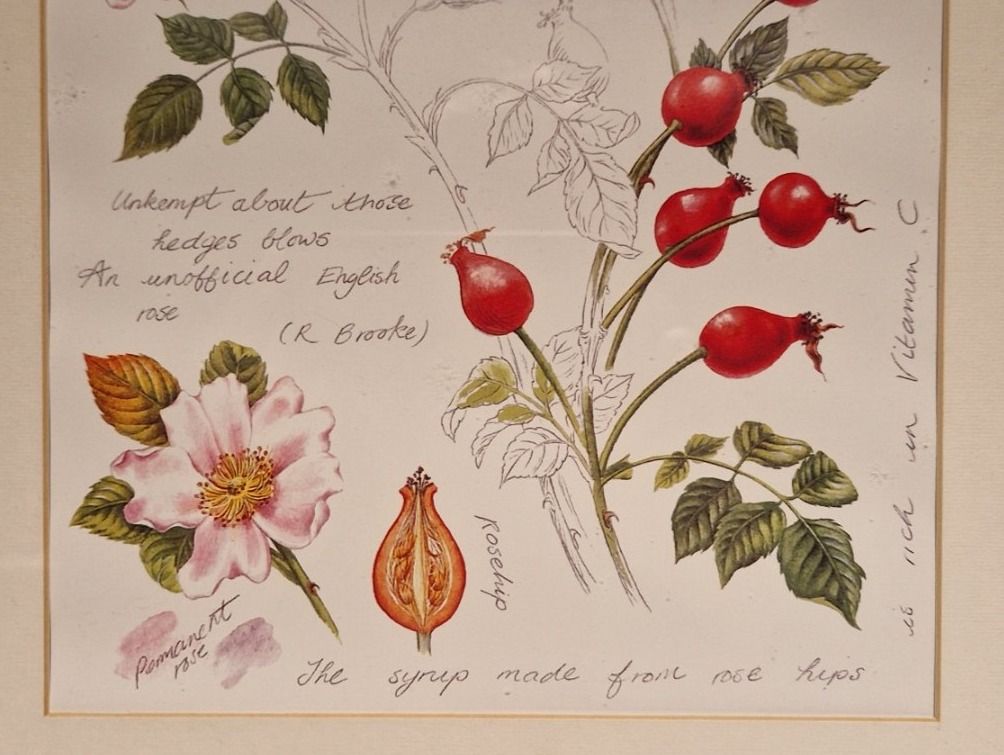 Unkempt about those
hedges blows
An unofficial English
rose
(R Brooke)
Rosehip
Permanent
rose
The syrup made from rose hips
is rich in Vitamin C